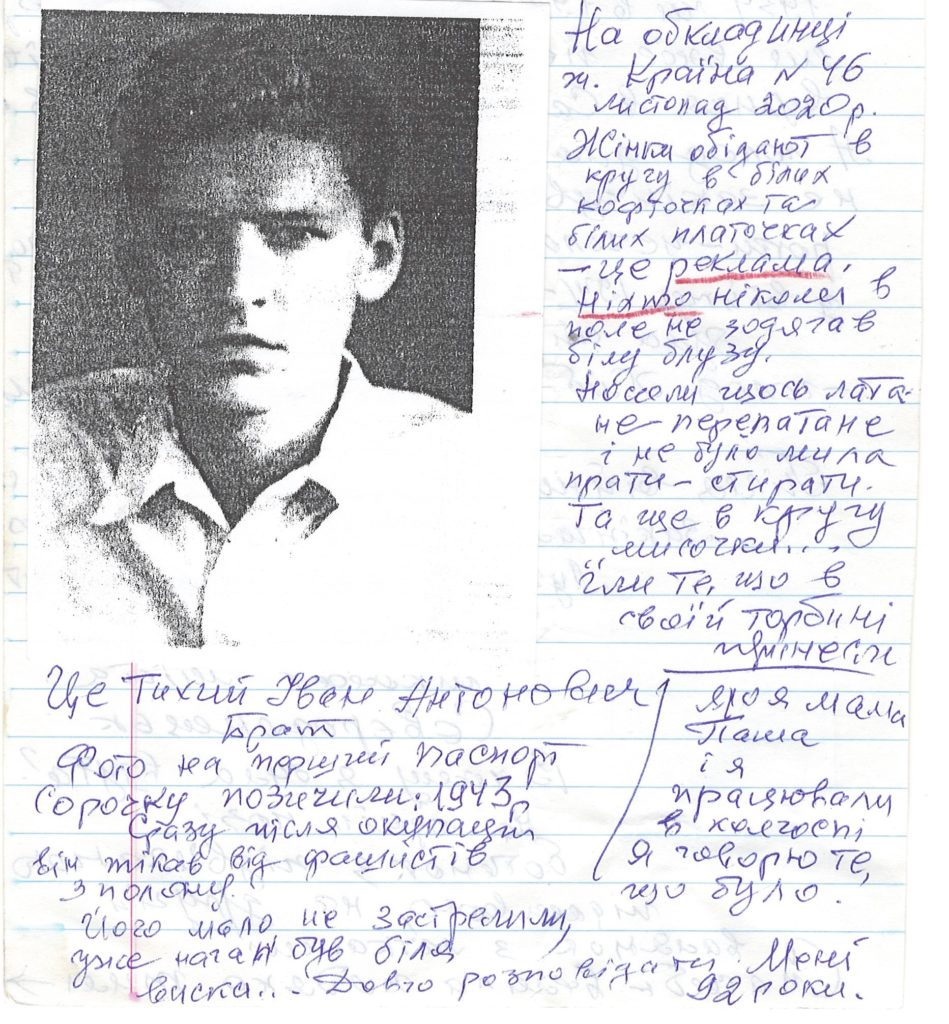 На обкладинці
ж. Країна N 46
листопад 2020р.
Жінки обідают в
кругу в білих
кофточках та
білих платочках
– це реклама.
Ніхто ніколи в
поле не зодягав
білу блузу.
Носили щось лата-
не-перелатане
і не було мила
прати – стирати.
Та ще в кругу
мисочки...
їли те, що в
своїй торбині
принесли
Це Тихий Іван Антонович
Брат
Фото на перший паспорт
сорочку позичили: 1943р
Сразу після окупації
він тікав від фашистів
з полону.
Його мало не застрелили,
уже наган був біля
виска... Довго розповідати.
моя мама
Паша
і я
працювали
в колгоспі
Я говорю те,
що було.
Мені
92 роки.